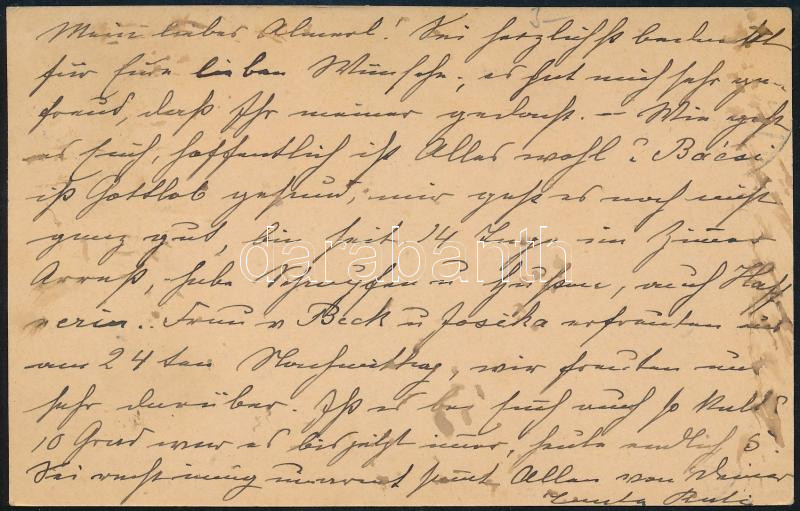 Mein liebes Almerl! Sei herzlichst bedankt
für Eure lieben Wünsche, es hat mich sehr ge-
freud, daß Ihr meiner gedacht. – Wie geht
es Euch, hoffentlich ist Alles wohl? Bácsi
ist Gottlob gesund, mir geht es noch nicht
ganz gut, bin seit 14 Tage im Zimer
Arrest, habe Schnupfen u Husten, auch
. Frau v Beck u Josika erfreuten uns
am 24 ten Nachmittag, wir freuten uns
sehr darüber. Ist es bei Euch auch so kalt?
10 Grad war es bis jetzt imer, heute endlich 5.
Sei recht innig umarmt samt Allen von Deiner
darabanth